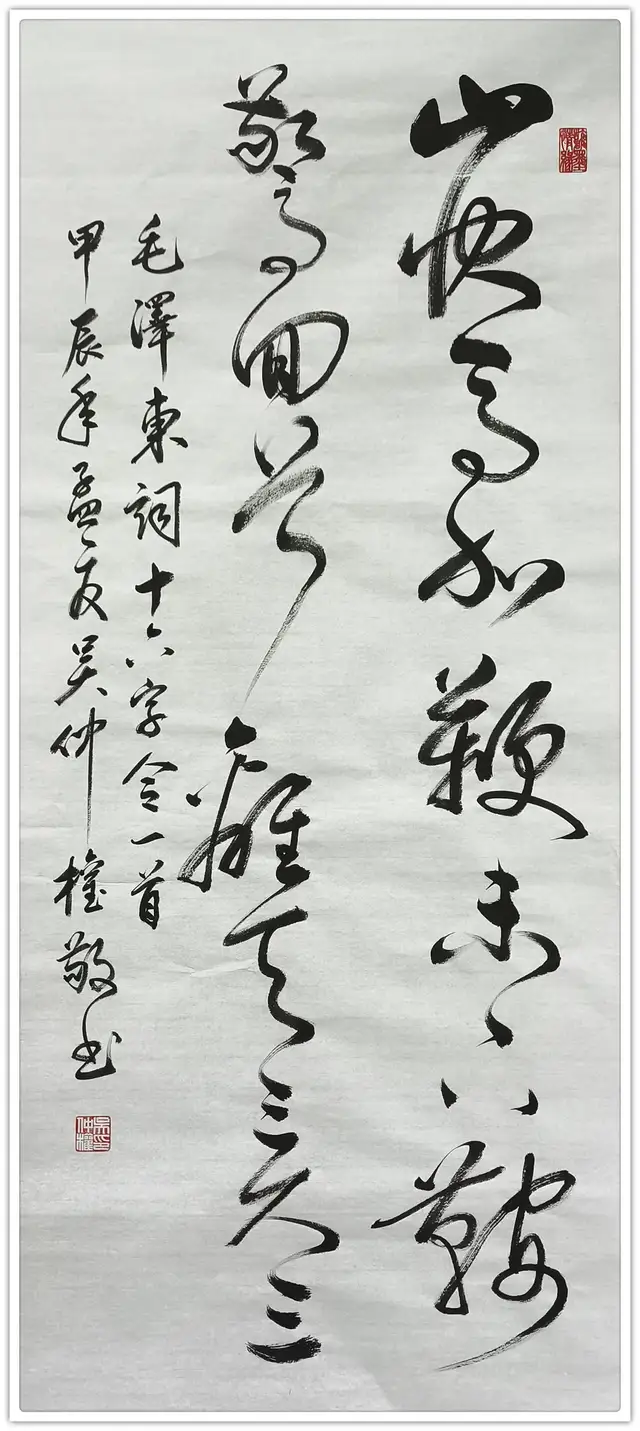 山快馬加鞭未下鞍
驚回首離天三尺三
毛澤東詞十六字令一首
甲辰年孟夏吴仲權敬书